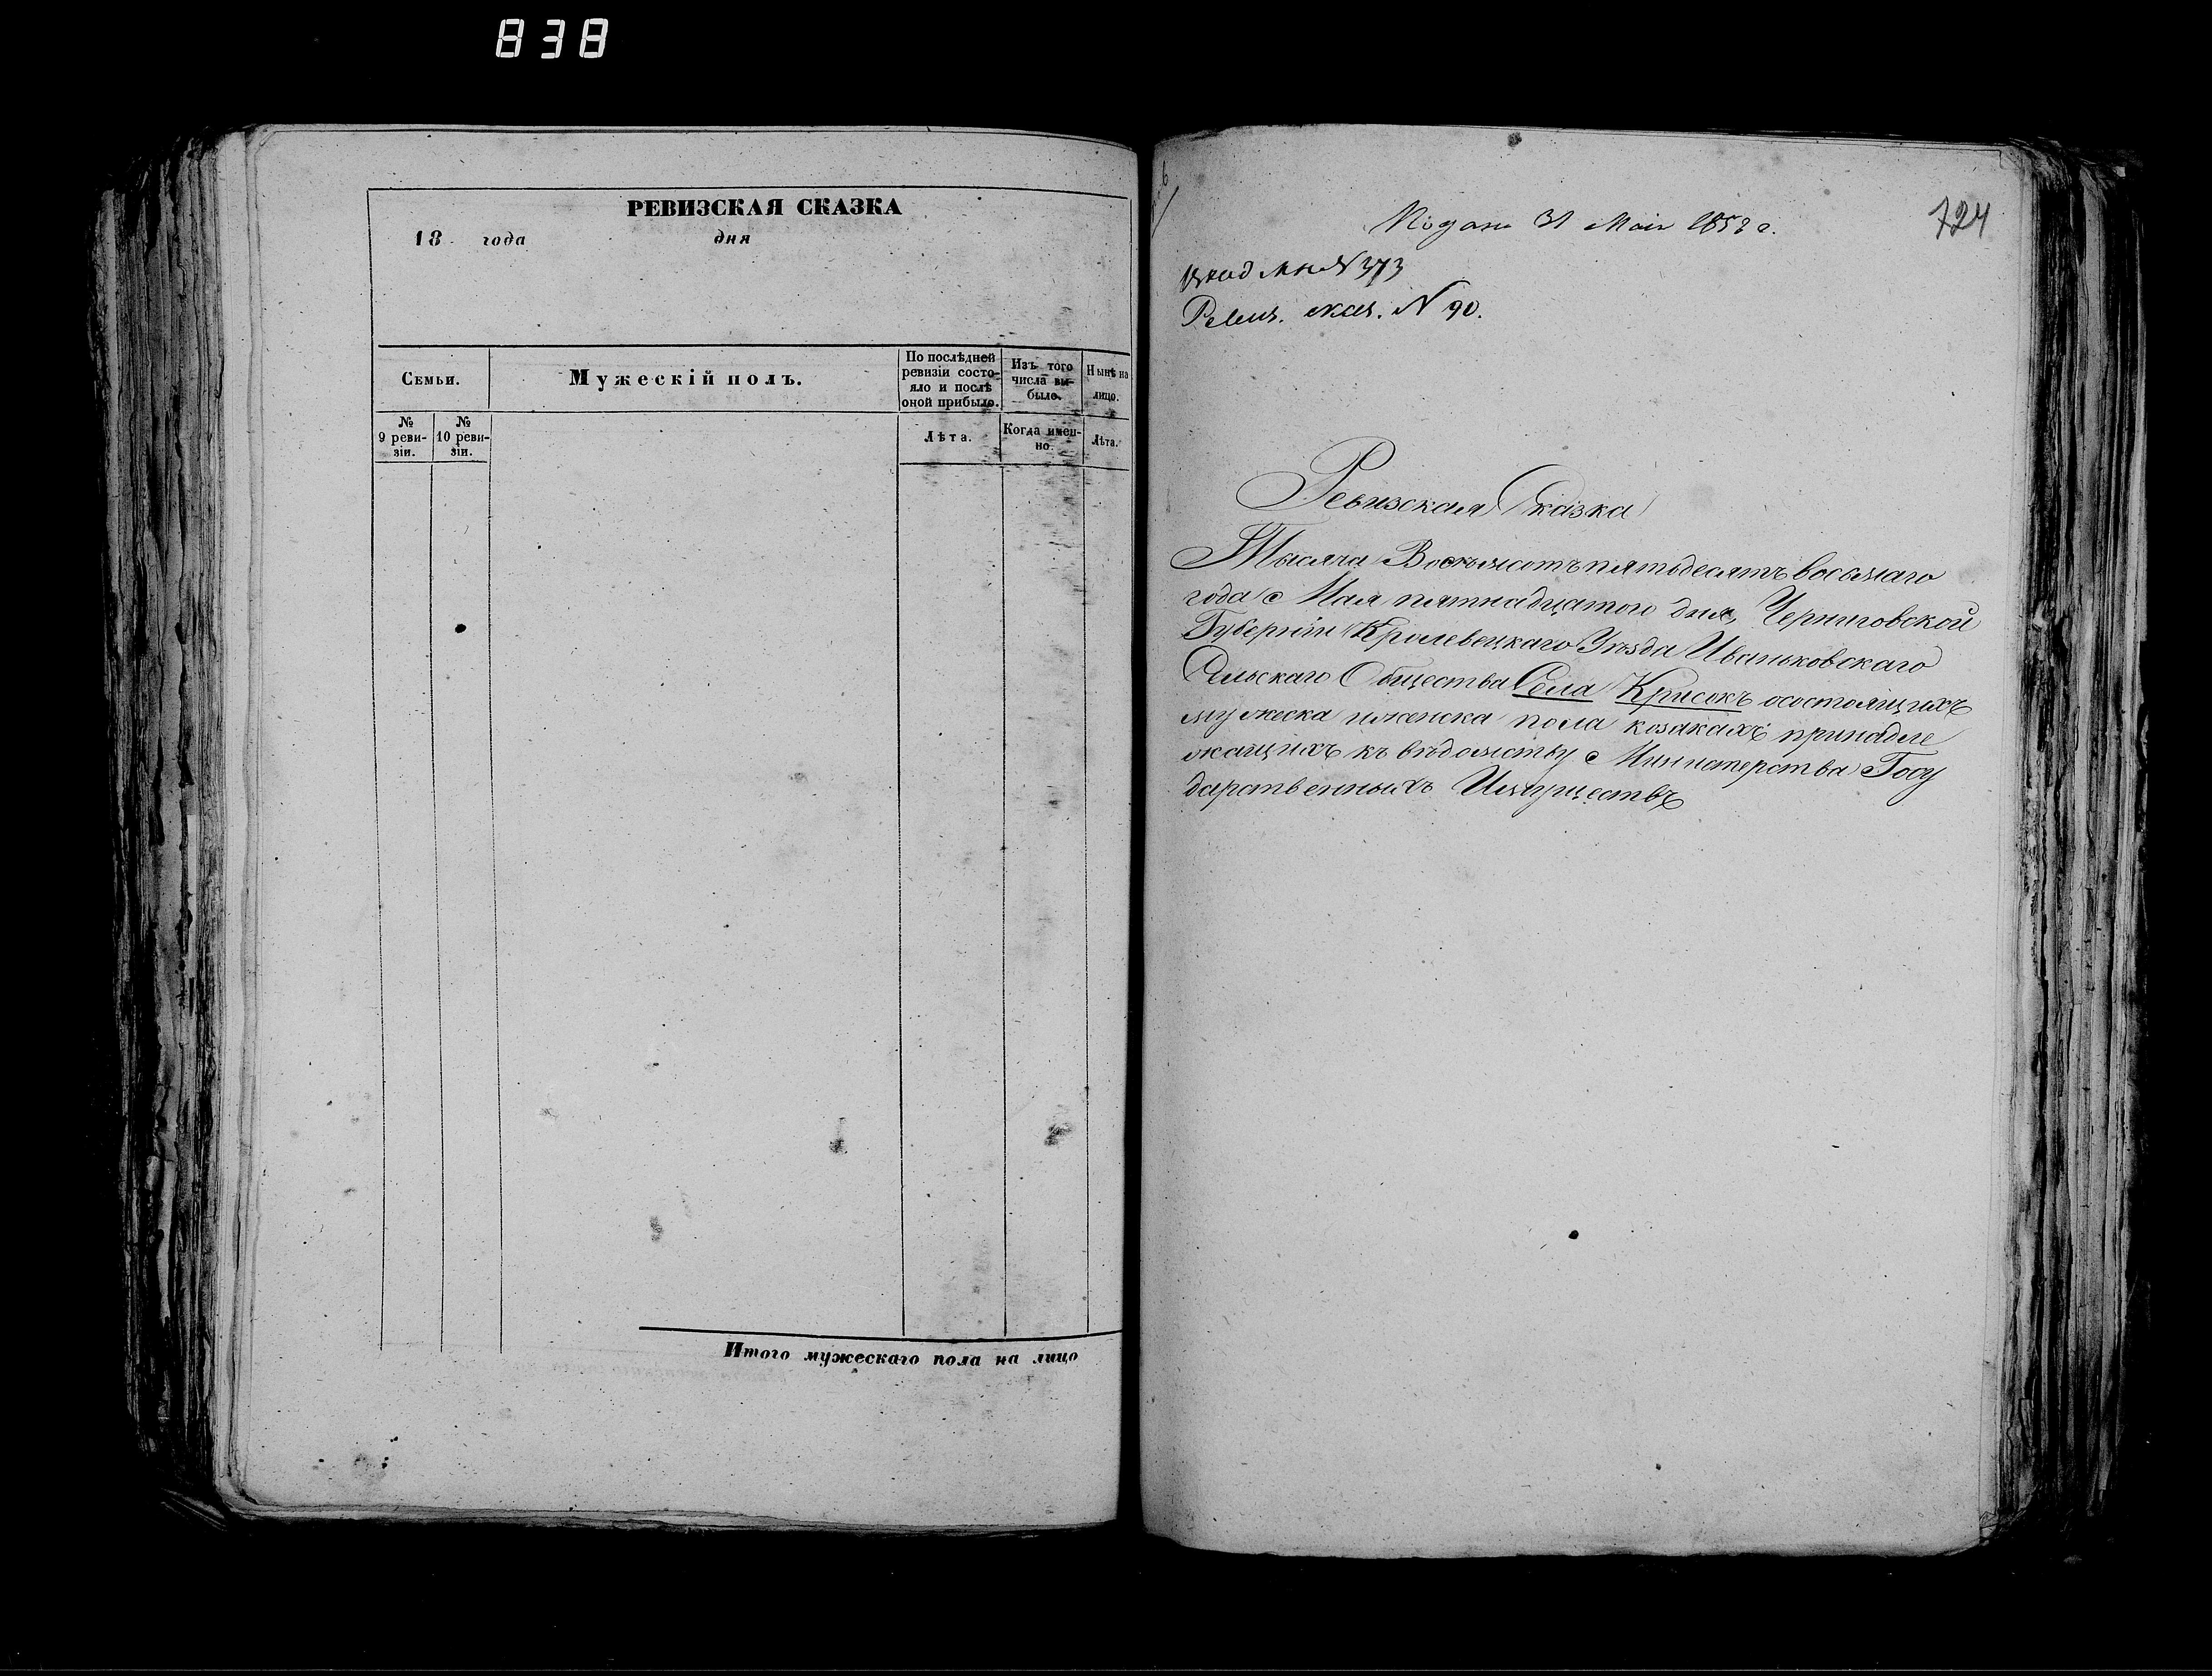 838
РЕВИЗСКАЯ СКАЗКА
18 года дня
Семьи.
Мужескій полъ.
По послѣдней ревизіи состо-
яло и послѣ оной прибыло.
Изъ того числа вы-
было.
Нынѣ на лицо.
№ 9 реви-
зіи.
№ 10 реви-
зіи.
Лѣта.
Когда имен-
но.
Лѣта.
Итого мужескаго пола на лицо
724
Подана 31 Маія 1858 г.
№ 373
Ревиз. сказ. № 90.
Ревизская Сказка
Тысяча Восемьсотъ пятьдесятъ восьмаго
года Мая пятнадцатого дня, Черниговской
Губерніи Кролевецкаго Уѣзда Иваньковскаго
Сельскаго Общества Села Крисокъ осостоящихъ
мужеска иженска пола козакахъ принадле
жащихъ къ вѣдомству Министерства Госу
дарственныхъ Имуществъ